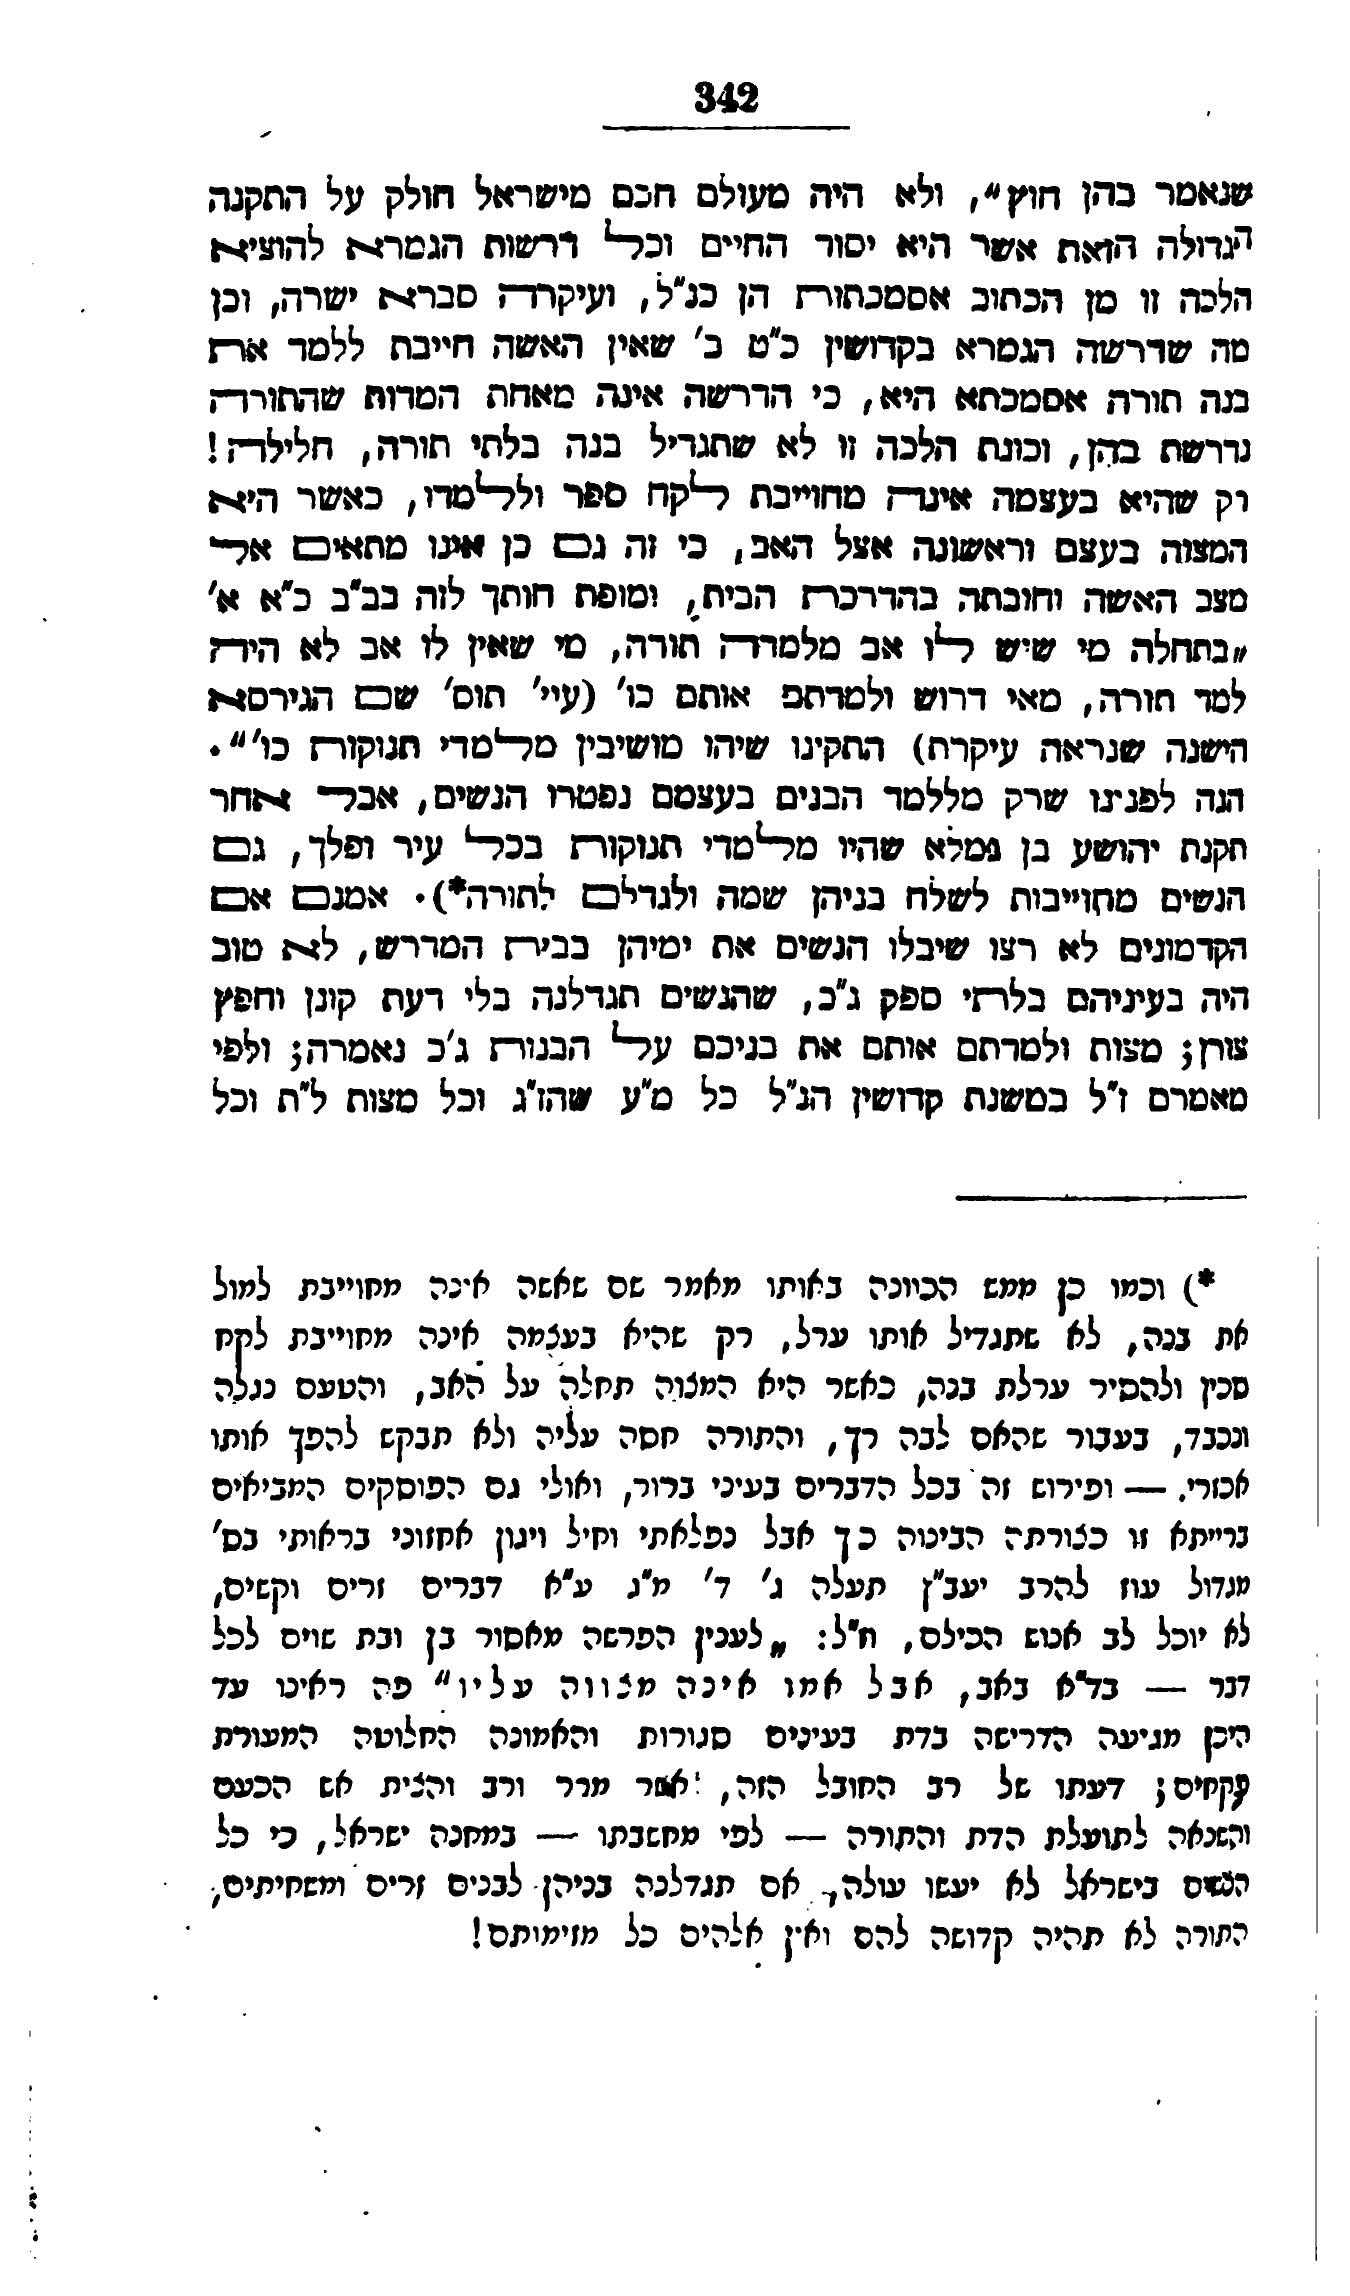 342
שנאמר בהן חוץ", ולא היה מעולם חכם מישראל חולק על התקנה
הגדולה הזאת אשר היא יסוד החיים וכל דרשות הגמרא להוציא
הלכה זו מן הכתוב אסמכתות הן כנ"ל, ועיקרה סברא ישרה, וכן
מה שדרשה הגמרא בקדושין כ"ט ב' שאין האשה חייבת ללמד את
בנה תורה אסמכתא היא, כי הדרשה אינה מאחת המדות שהתורה
נדרשת בהן, וכונת הלכה זו לא שתגדיל בנה בלתי תורה, חלילה!
רק שהיא בעצמה אינה מחוייבת לקח ספר וללמדו, כאשר היא
המצוה בעצם וראשונה אצל האב, כי זה גם כן אינו מתאים אל
מצב האשה וחובתה בהדרכת הבית, ומופת חותך לזה בב"ב כ"א א'
„בתחלה מי שיש לו אב מלמדה תורה, מי שאין לו אב לא היה
למד תורה, מאי דרוש ולמדתם אותם כו' (עיי' תוס' שם הגירסא
הישנה שנראה עיקרת) התקינו שיהו מושיבין מלמדי תנוקות כו'".
הנה לפנינו שרק מללמד הבנים בעצמם נפטרו הנשים, אבל אחר
תקנת יהושע בן גמלא שהיו מלמדי תנוקות בכל עיר ופלך, גם
הנשים מחוייבות לשלח בניהן שמה ולגדלם לתורה*). אמנם אם
הקדמונים לא רצו שיבלו הנשים את ימיהן בבית המדרש, לא טוב
היה בעיניהם בלתי ספק ג"כ, שהנשים תגדלנה בלי דעת קונן וחפץ
צורן; מצות ולמדתם אותם את בניכם על הבנות ג'כ נאמרה; ולפי
מאמרם ז"ל במשנת קדושין הנ"ל כל מ"ע שהז"ג וכל מצות ל"ת וכל
*) וכמו כן ממש הכוונה באותו מאמר שם שאשה אינה מחוייבת למול
את בנה, לא שתגדיל אותו ערל, רק שהיא בעצמה אינה מחוייבת לקח
סכין ולהסיר ערלת בנה, כאשר היא המצוה תחלה על האב, והטעם נגלה
ונכבד, בעבור שהאם לבה רך, והתורה חסה עליה ולא תבקש להפך אותו
אכזרי. — ופירוש זה בכל הדברים בעיני ברור, ואולי גם הפוסקים המביאים
ברייתא זו כצורתה הבינוה כך אבל נפלאתי וחיל ויגון אחזוני בראותי בס'
מגדול עוז להרב יעב"ץ תעלה ג' ד' מ"ג ע"א דברים זרים וקשים,
לא יוכל לב אנוש הכילם, ח"ל: „לענין הפרשה מאסור בן ובת שוים לכל
דבר — בד"א באב, אבל אמו אינה מצווה עליו" פה ראינו עד
היכן מגיעה הדרישה בדת בעינים סגורות והאמונה החלוטה המעורת
פקחים; דעתו של רב החובל הזה, אשר מרר ורב והצית אש הכעס
והשנאה לתועלת הדת והתורה — לפי מחשבתו — במחנה ישראל, כי כל
הנשים בישראל לא יעשו עולה, אם תגדלנה בניהן לבנים זרים ומשחיתים,
התורה לא תהיה קדושה להם ואין אלהים כל מזימותם!